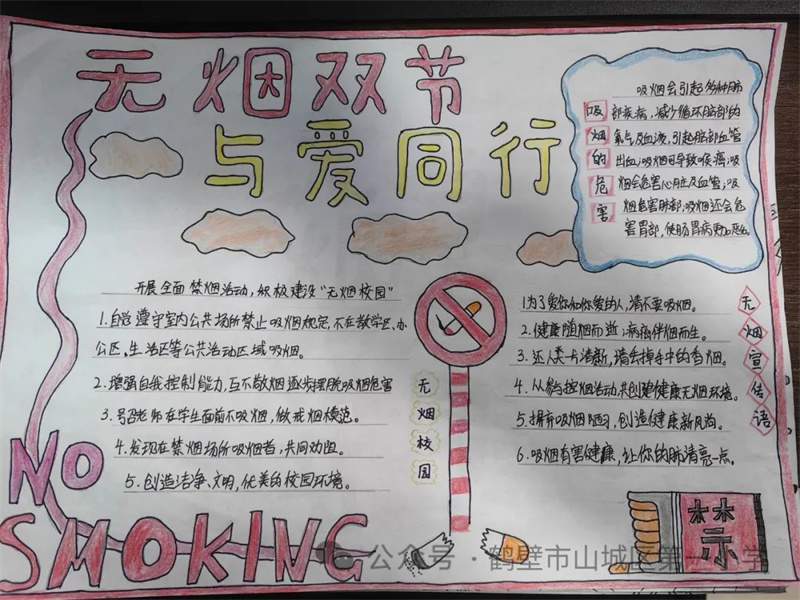 无烟双节
与爱同行
吸烟的危害
吸烟会引起多种肺
部疾病,减少循环脑部的
氧气及血液,引起脑部血管
出血;吸烟可导致喉癌;吸
烟会危害心脏及血管;吸
烟危害肺部;吸烟还会危
害胃部,使肠胃病更加恶化
开展全面禁烟活动,积极建设“无烟校园”
1.自觉遵守室内公共场所禁止吸烟规定,不在教学区、办
公区、生活区等公共活动区域吸烟。
2.增强自我控制能力,互不敬烟逐步摆脱吸烟危害
3.号召老师在学生面前不吸烟,做戒烟模范。
4.发现在禁烟场所吸烟者,共同劝阻。
5.创造洁净、文明,优美的校园环境。
无烟校园
1.为了爱你和你爱的人,请不要吸烟。
2.健康随烟而逝;病痛伴烟而生。
3.还人类一片清新,请舍掉手中的香烟。
4.从参与控烟活动,共创建健康无烟环境。
5.摒弃吸烟陋习,创造健康新风尚。
6.吸烟有害健康,让你的肺清亮一点。
无烟宣传语
NO
SMOKING
禁
公众号·鹤壁市山城区第一小学